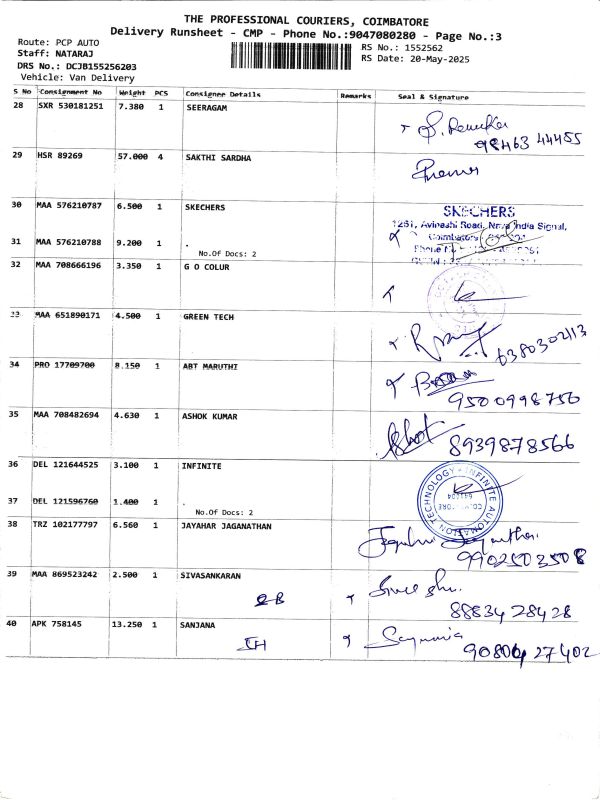 THE PROFESSIONAL COURIERS, COIMBATORE
Delivery Runsheet - CMP - Phone No.:9047080280 - Page No.:3
Route: PCP AUTO
Staff: NATARAJ
DRS No.: DCJB155256203
Vehicle: Van Delivery
RS No.: 1552562
RS Date: 20-May-2025
S No Consignment No Weight PCS Consignee Details Remarks Seal & Signature
28 SXR 530181251 7.380 1 SEERAGAM
98463 44455
29 HSR 89269 57.000 4 SAKTHI SARDHA
30 MAA 576210787 6.500 1 SKECHERS
SKECHERS
1251, Avinashi Road, Nava India Signal,
Coimbatore
31 MAA 576210788 9.200 1 .
No.Of Docs: 2
32 MAA 708666196 3.350 1 G O COLUR
33 MAA 651890171 4.500 1 GREEN TECH
6380302113
34 PRO 17709700 8.150 1 ABT MARUTHI
9500998750
35 MAA 708482694 4.630 1 ASHOK KUMAR
Ashok 8939878566
36 DEL 121644525 3.100 1 INFINITE
INFINITE AUTOMATION TECHNOLOGY
COIMBATORE
37 DEL 121596760 1.400 1 .
No.Of Docs: 2
38 TRZ 102177797 6.560 1 JAYAHAR JAGANATHAN
9902503508
39 MAA 869523242 2.500 1 SIVASANKARAN
88834 28428
40 APK 758145 13.250 1 SANJANA
90806 27402